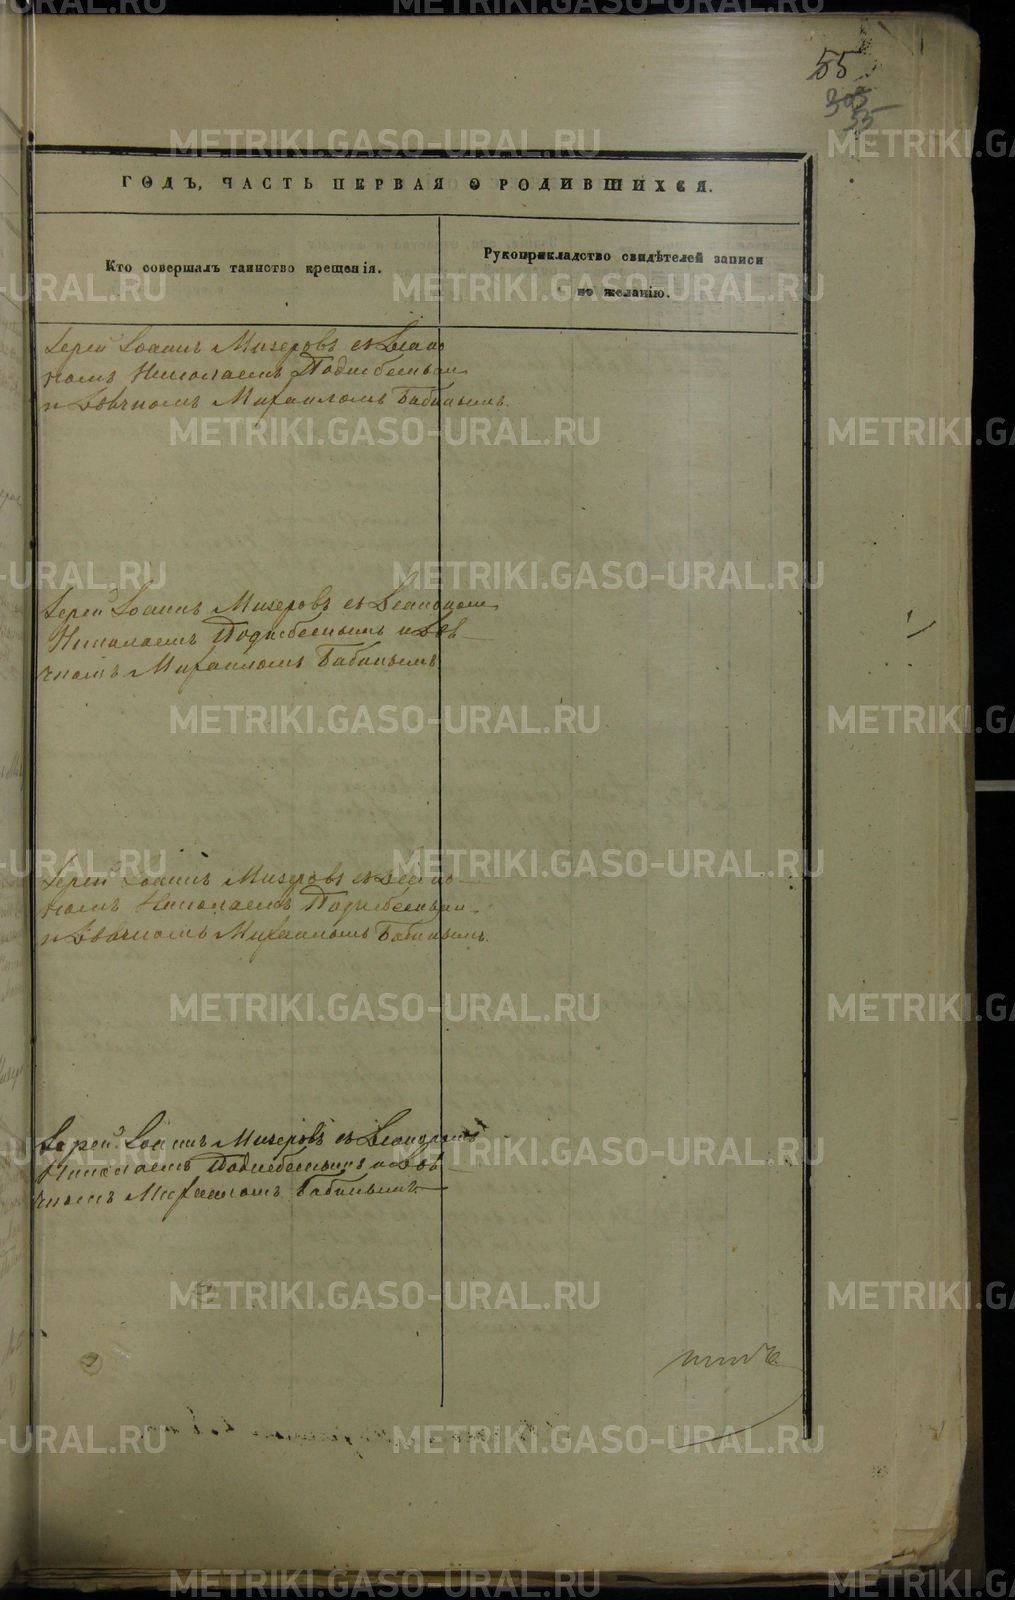 55
305
55
ГОДЪ, ЧАСТЬ ПЕРВАЯ О РОДИВШИХСЯ.
Кто совершалъ таинство крещенія.
Рукоприкладство свидѣтелей записи
по желанію.
Іерей Іоаннъ Мизеровъ съ Діако
номъ Николаемъ Поднебеснымъ
и Дьячкомъ Михаиломъ Бабинымъ.
Іерей Іоаннъ Мизеровъ съ Діакономъ
Николаемъ Поднебеснымъ и Дья
чкомъ Михаиломъ Бабинымъ
Іерей Іоаннъ Мизеровъ съ Діако
номъ Николаемъ Поднебеснымъ
и Дьячкомъ Михаиломъ Бабинымъ.
Іерей Іоаннъ Мизеровъ съ Діакономъ
Николаемъ Поднебеснымъ и Дья
чкомъ Михаиломъ Бабинымъ
METRIKI.GASO-URAL.RU